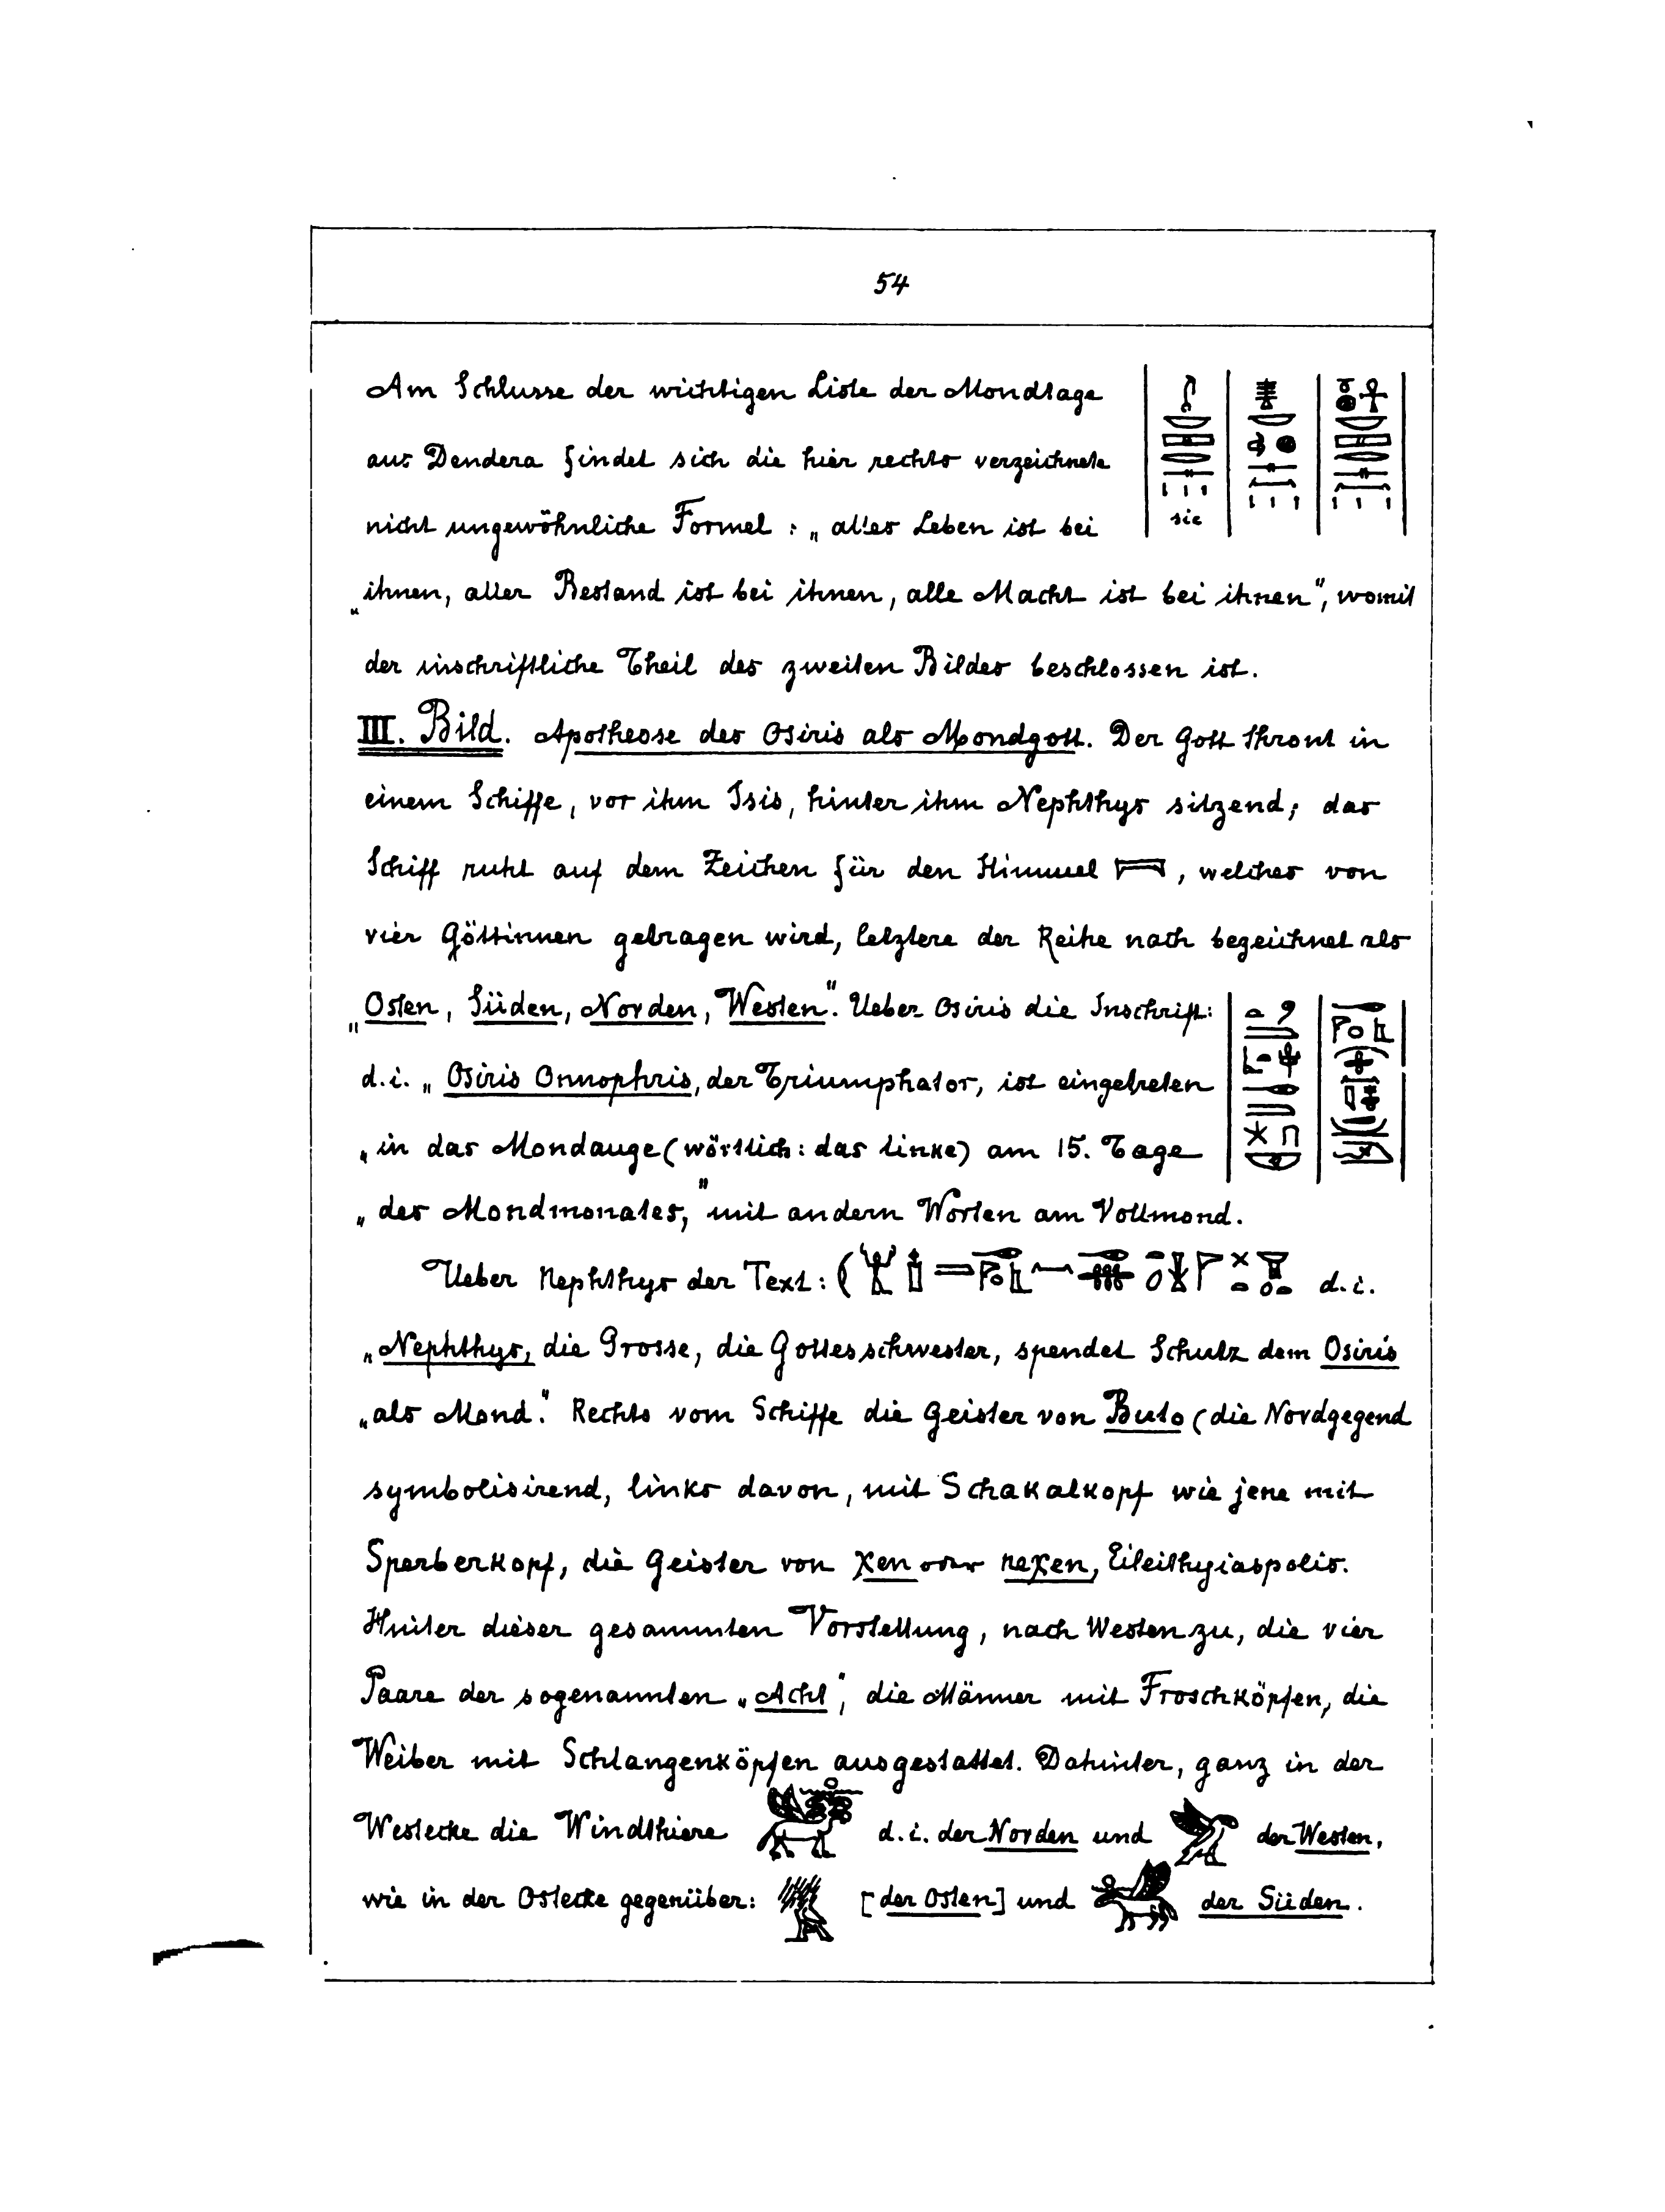 54
Am Schlusse der wichtigen Liste der Mondtage
aus Dendera findet sich die hier rechts verzeichnete
nicht ungewöhnliche Formel : „ alles Leben ist bei
sic
„ihnen, aller Bestand ist bei ihnen, alle Macht ist bei ihnen“, womit
der inschriftliche Theil des zweiten Bildes beschlossen ist.
III. Bild. Apotheose des Osiris als Mondgott. Der Gott thront in
einem Schiffe, vor ihm Isis, hinter ihm Nephthys sitzend; das
Schiff ruht auf dem Zeichen für den Himmel , welches von
vier Göttinnen getragen wird, letztere der Reihe nach bezeichnet als
„Osten, Süden, Norden, Westen“. Ueber Osiris die Inschrift:
d.i. „ Osiris Onnophris, der Triumphator, ist eingetreten
„in das Mondauge (wörtlich: das linke) am 15. Tage
„des Mondmonates,“ mit andern Worten am Vollmond.
Ueber Nephthys der Text: d.i.
„Nephthys, die Grosse, die Gottesschwester, spendet Schutz dem Osiris
„als Mond“. Rechts vom Schiffe die Geister von Buto (die Nordgegend
symbolisirend, links davon, mit Schakalkopf wie jene mit
Sperberkopf, die Geister von χen oder neχen, Eileithyiaspolis.
Hinter dieser gesammten Vorstellung, nach Westen zu, die vier
Paare der sogenannten „Acht“, die Männer mit Froschköpfen, die
Weiber mit Schlangenköpfen ausgestattet. Dahinter, ganz in der
Westecke die Windthiere d.i. der Norden und der Westen,
wie in der Ostecke gegenüber: [der Osten] und der Süden.